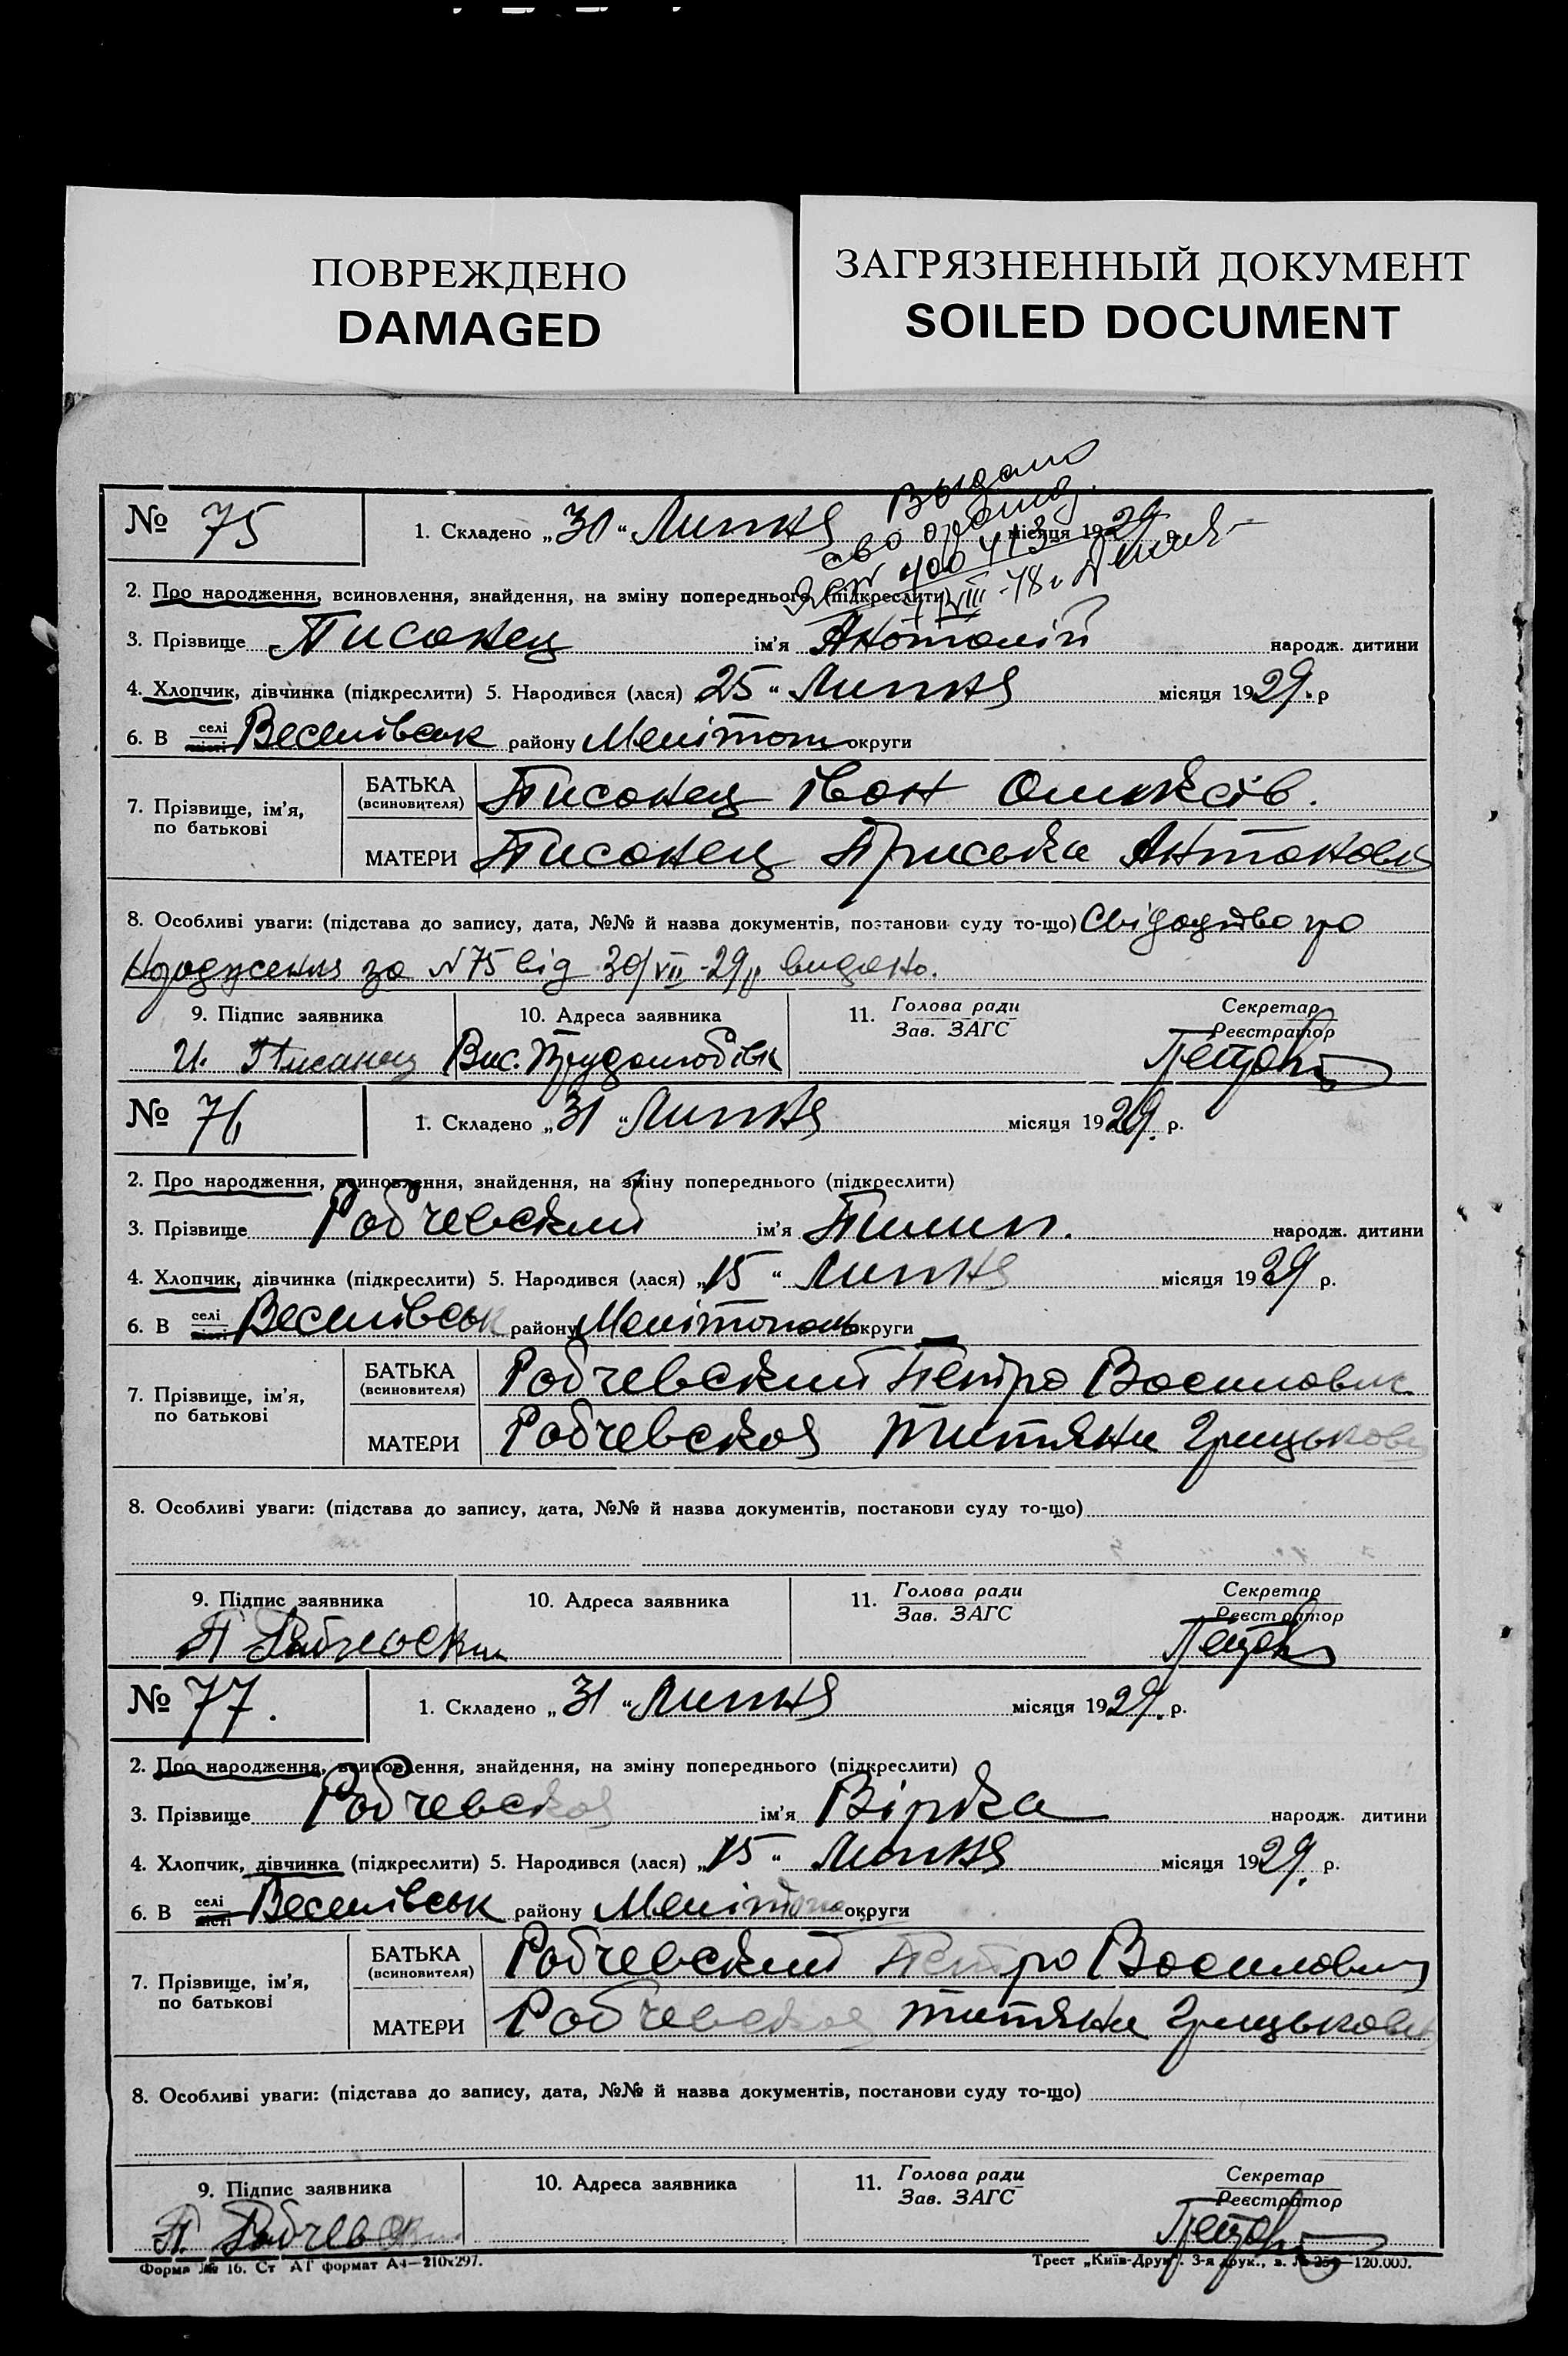 ПОВРЕЖДЕНО
DAMAGED
ЗАГРЯЗНЕННЫЙ ДОКУМЕНТ
SOILED DOCUMENT
Выдано
№ 75
1. Складено „30“ Липня місяця 1929 р.
2. Про народження, всиновлення, знайдення, на зміну попереднього (підкреслити)
3. Прізвище Писанец ім'я Анатолій народж. дитини
4. Хлопчик, дівчинка (підкреслити) 5. Народився (лася) 25“ Липня місяця 1929. р
6. В селі місті Веселівськ району Мелітоп округи
7. Прізвище, ім'я, по батькові
БАТЬКА (всиновителя) Писанец Іван Олексів.
МАТЕРИ Писанец Приська Антонові
8. Особливі уваги: (підстава до запису, дата, №№ й назва документів, постанови суду то-що) Свідоцтво про
народження за N 75 від 30/VII-29 р видано.
9. Підпис заявника
10. Адреса заявника
11. Голова ради Зав. ЗАГС
Секретар Реєстратор
И. Писанец Вис. Трудолюбівк
№ 76
1. Складено „31“ Липня місяця 1929. р.
2. Про народження, всиновлення, знайдення, на зміну попереднього (підкреслити)
3. Прізвище Рабчевский ім'я Пилип. народж. дитини
4. Хлопчик, дівчинка (підкреслити) 5. Народився (лася) „15“ Липня місяця 1929 р.
6. В селі місті Веселівськ району Мелітополь округи
7. Прізвище, ім'я, по батькові
БАТЬКА (всиновителя) Рабчевский Петро Василович
МАТЕРИ Рабчевская Титяна Грицькові
8. Особливі уваги: (підстава до запису, дата, №№ й назва документів, постанови суду то-що)
9. Підпис заявника
10. Адреса заявника
11. Голова ради Зав. ЗАГС
Секретар Реєстратор
П Рабчевски
№ 77.
1. Складено „31“ Липня місяця 1929. р.
2. Про народження, всиновлення, знайдення, на зміну попереднього (підкреслити)
3. Прізвище Рабчевская ім'я Вірка народж. дитини
4. Хлопчик, дівчинка (підкреслити) 5. Народився (лася) „15“ Липня місяця 1929. р.
6. В селі місті Веселівськ району Мелітопо округи
7. Прізвище, ім'я, по батькові
БАТЬКА (всиновителя) Рабчевский Петро Василович
МАТЕРИ Рабчевская Титяна Грицькові
8. Особливі уваги: (підстава до запису, дата, №№ й назва документів, постанови суду то-що)
9. Підпис заявника
10. Адреса заявника
11. Голова ради Зав. ЗАГС
Секретар Реєстратор
П. Рабчевски
Форма № 16. Ст АГ формат А4—210x297.
Трест „Київ-Друк“. 3-я друк., з. № 120.000.